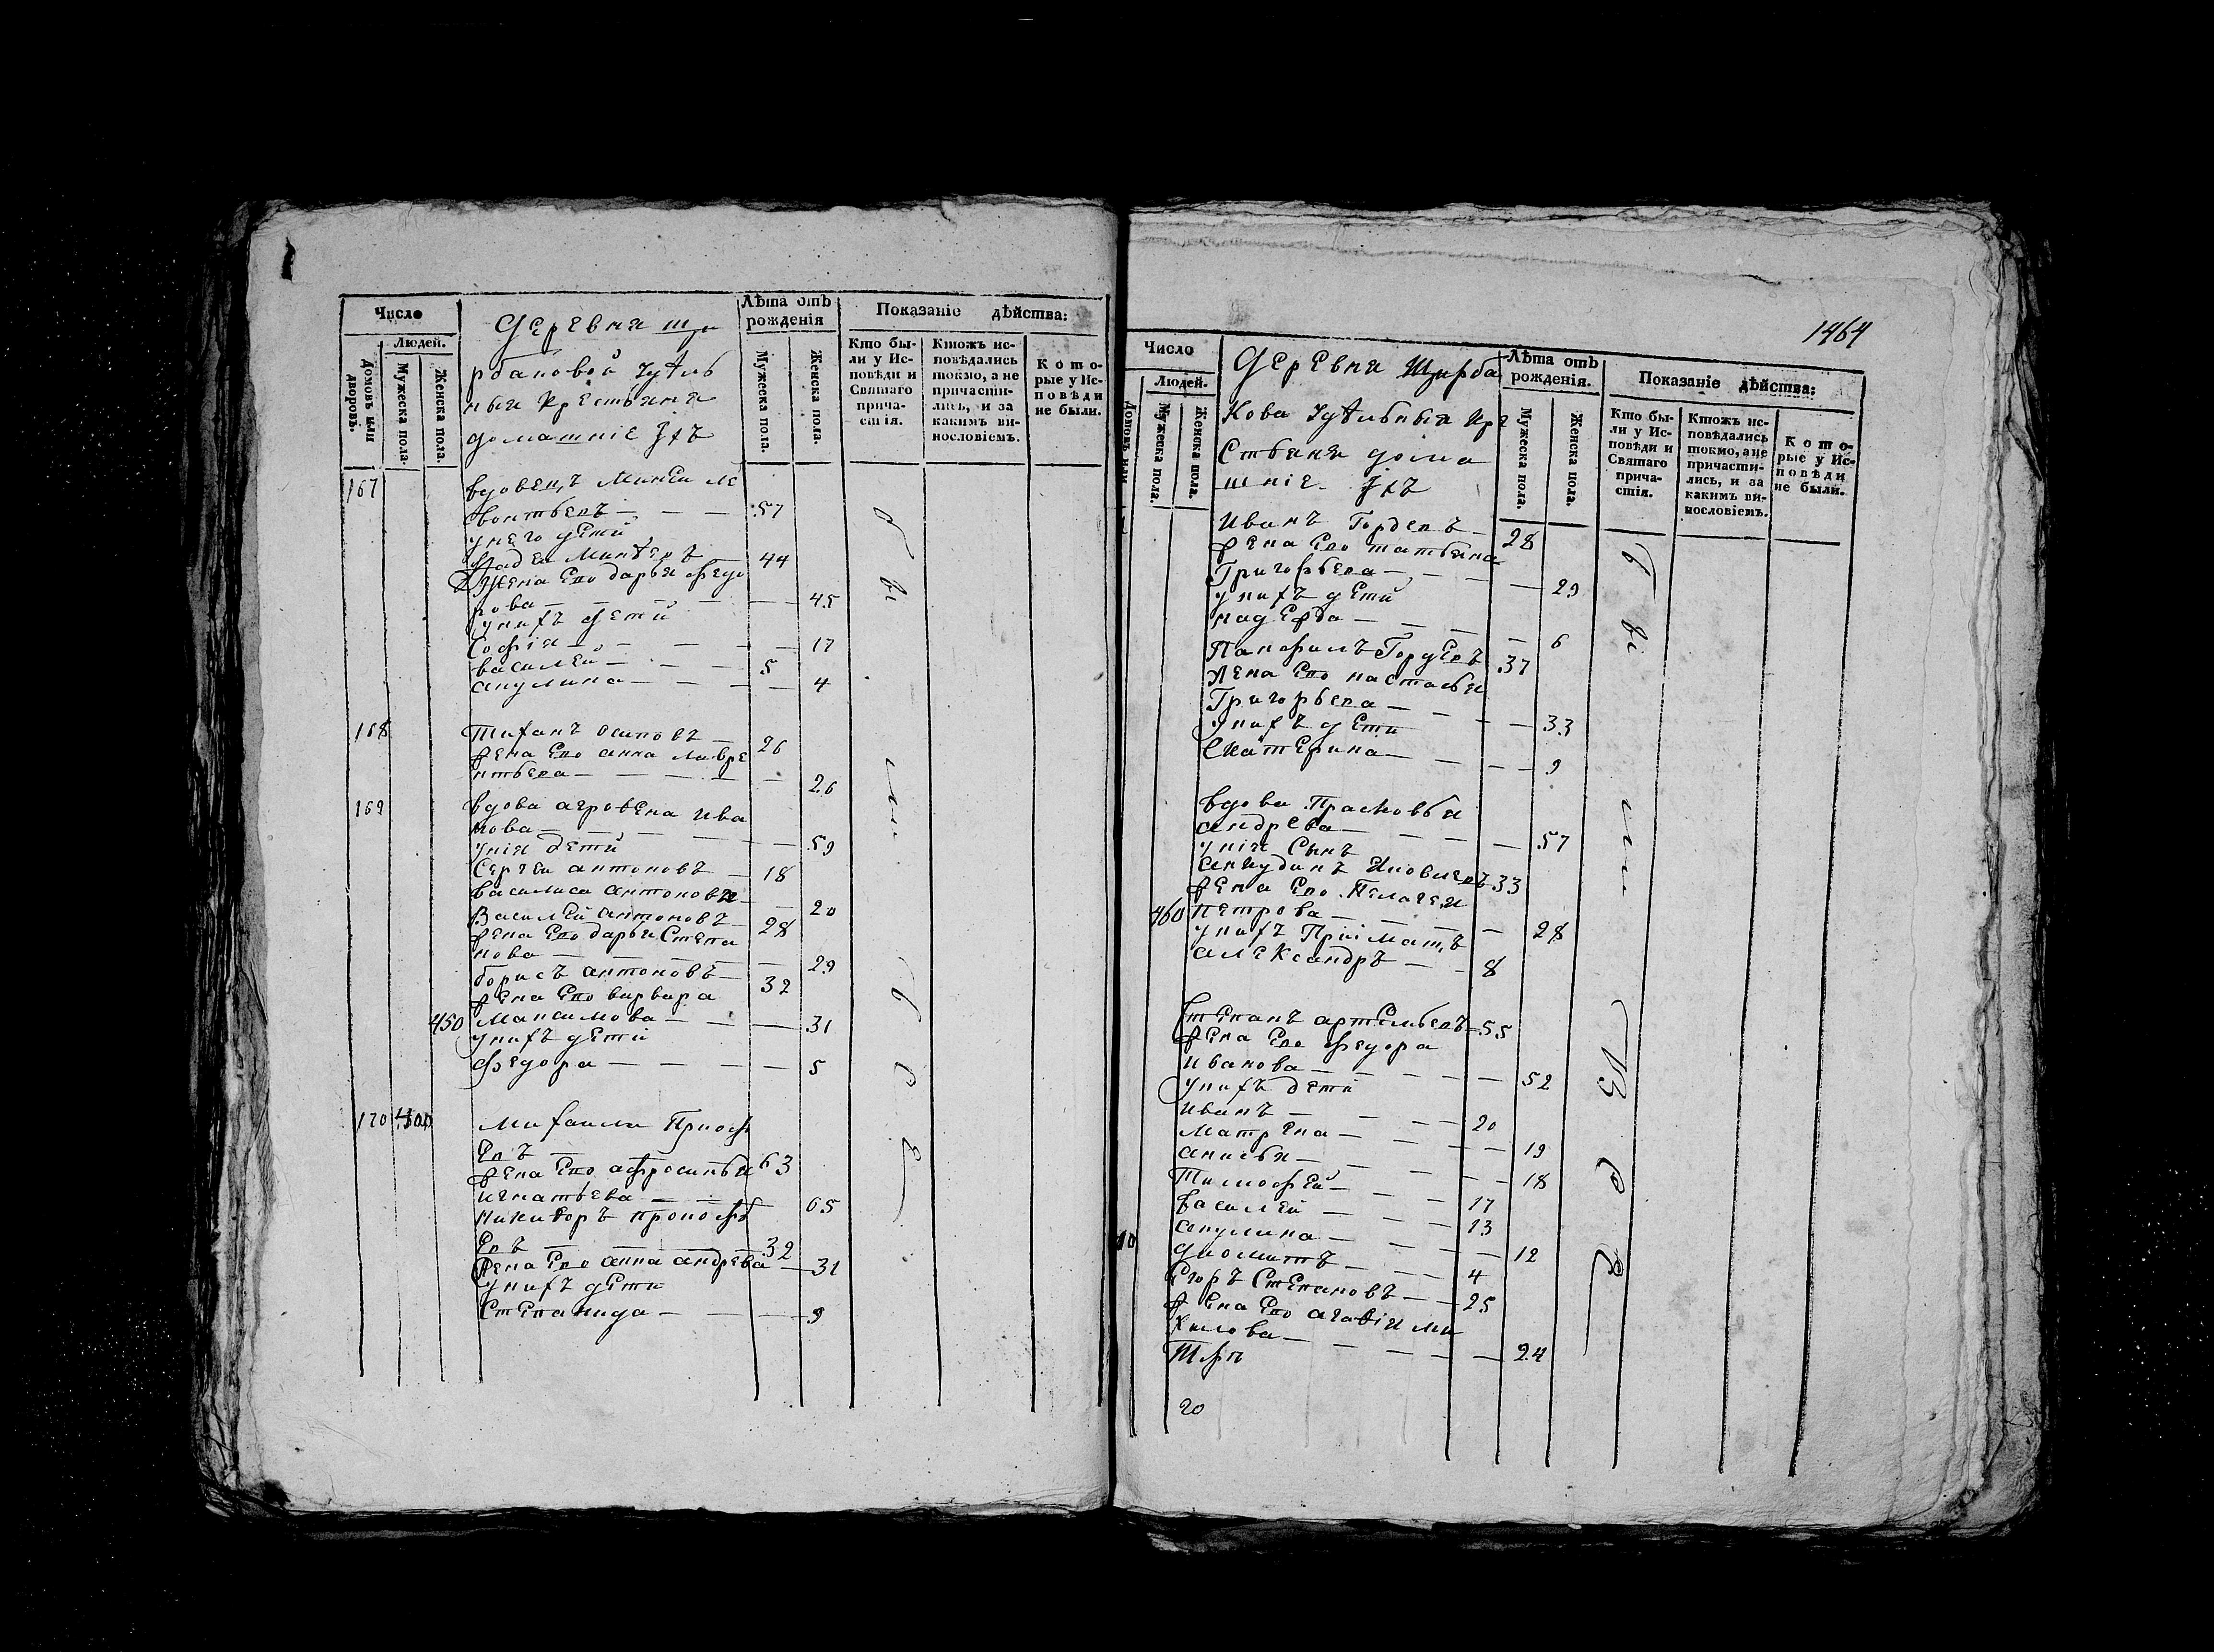 Число
Людей.
Домовъ или дворовъ.
Мужеска пола.
Женска пола.
Деревни щи
рбаковой Удѣль
ныя крестьяня
домашніе ихъ
Лѣта отъ рожденія
Мужеска пола.
Женска пола.
Показаніе дѣйства:
Кто бы-
ли у Ис-
повѣди и
Святаго
прича-
стія.
Ктожъ ис-
повѣдались
токмо, а не
причасти-
лись, и за
какимъ ви-
нословіемъ.
К о т о-
рые у Ис-
п о в ѣ д и
не были.
167 вдовецъ Миней Ле
онтьевъ — — — 57
унего дети
Фадеи Минѣевъ — 44
Жена Его дарья Федо
рова — — — — 45
унихъ дети
Софія — — — — 17
василей — — — 5
акулина — — — — 4
168 Тихонъ осиповъ — 26
жена Его анна лавре
нтьева — — — — 26
169 вдова агровена ива
нова — — — — 59
унія дети
Сергеи антоновъ — 18
василиса антонова — 20
Василей антоновъ — 28
жена Его дарья Степа
нова — — — — 29
борисъ антоновъ — 32
жена Его варвара
450 Максимова — — — 31
унихъ дети
Федора — — — — 5
170 400 Михаила Прокофь
евъ — — — 63
жена Его афросинья
игнатьева — — — 65
Никифоръ прокофь
евъ — — — 32
жена Его анна андрева — 31
унихъ дети
Степанида — — — 9
были
все
1464
Число
Людей.
Домовъ или
Мужеска пола.
Женска пола.
Деревни Щирба
кова Удѣльныя кре
стьяня дома
шніе ихъ
Лѣта отъ рожденія.
Мужеска пола.
Женска пола.
Показаніе дѣйства:
Кто бы-
ли у Ис-
повѣди и
Святаго
прича-
стія.
Ктожъ ис-
повѣдались
токмо, а не
причасти-
лись, и за
какимъ ви-
нословіемъ.
К о т о-
рые у Ис-
п о в ѣ д и
не были.
Иванъ Гордевъ — 28
жена Его татьяна
Григорьева — — — 29
унихъ дети
надежда — — — — 6
Панфилъ Гордевъ 37
жена Его настасья
Григорьева — — — 33
унихъ дети
Екатерина — — — 9
вдова Прасковья
андрева — — — — 57
унія Сынъ
33
жена Его Пелагея
460 петрова — — — 28
унихъ Пріимашъ
александръ — — 8
Степанъ артемьевъ — 55
жена Его Федора
иванова — — — — 52
унихъ дети
иванъ — — — 20
матрена — — — — 19
анисья — — — — 18
Тимофей — — — 17
василей — — — 13
акулина — — — — 12
— — — 4
Егоръ Степановъ — — 25
жена Его агафія ми
хилова — — — — 24
20
были
все